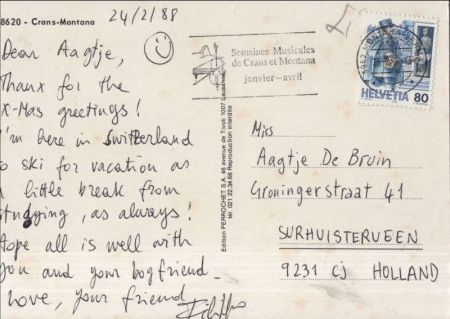 8620 - Crans-Montana
24/2/88
Dear Aagtje,
Thanx for the
X-Mas greetings!
I'm here in Switzerland
to ski for vacation as
a little break from
studying, as always!
Hope all is well with
you and your boyfriend_
Love, your friend
Edition PERROCHET S.A. 46 avenue de Tivoli 1007 Lausanne
tél. 021 22 34 66 Reproduction interdite
Semaines Musicales
de Crans et Montana
janvier-avril
HELVETIA 80
Miss
Aagtje De Bruin
Groningerstraat 41
SURHUISTERVEEN
9231 Cj HOLLAND